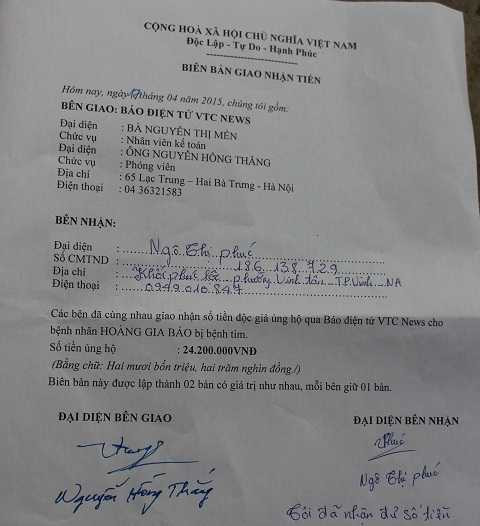 CỘNG HOÀ XÃ HỘI CHỦ NGHĨA VIỆT NAM
Độc Lập - Tự Do - Hạnh Phúc
BIÊN BẢN GIAO NHẬN TIỀN
Hôm nay, ngày tháng 04 năm 2015, chúng tôi gồm:
BÊN GIAO: BÁO ĐIỆN TỬ VTC NEWS
Đại diện : BÀ NGUYỄN THỊ MẾN
Chức vụ : Nhân viên kế toán
Đại diện : ÔNG NGUYỄN HỒNG THẮNG
Chức vụ : Phóng viên
Địa chỉ : 65 Lạc Trung – Hai Bà Trưng - Hà Nội
Điện thoại : 04 36321583
BÊN NHẬN:
Đại diện : Ngô Thị phúc
Số CMTND : 186 138 929
Địa chỉ : Khối phúc lộc phường Vinh tân TP Vinh NA
Điện thoại : 0949 010 847
Các bên đã cùng nhau giao nhận số tiền độc giả ủng hộ qua Báo điện tử VTC News cho
bệnh nhân HOÀNG GIA BẢO bị bệnh tim.
Số tiền ủng hộ : 24.200.000VNĐ
(Bằng chữ: Hai mươi bốn triệu, hai trăm nghìn đồng./)
Biên bản này được lập thành 02 bản có giá trị như nhau, mỗi bên giữ 01 bản.
ĐẠI DIỆN BÊN GIAO ĐẠI DIỆN BÊN NHẬN
Phúc
Nguyễn Hồng Thắng Ngô Thị phúc
Tôi đã nhận đủ số tiền